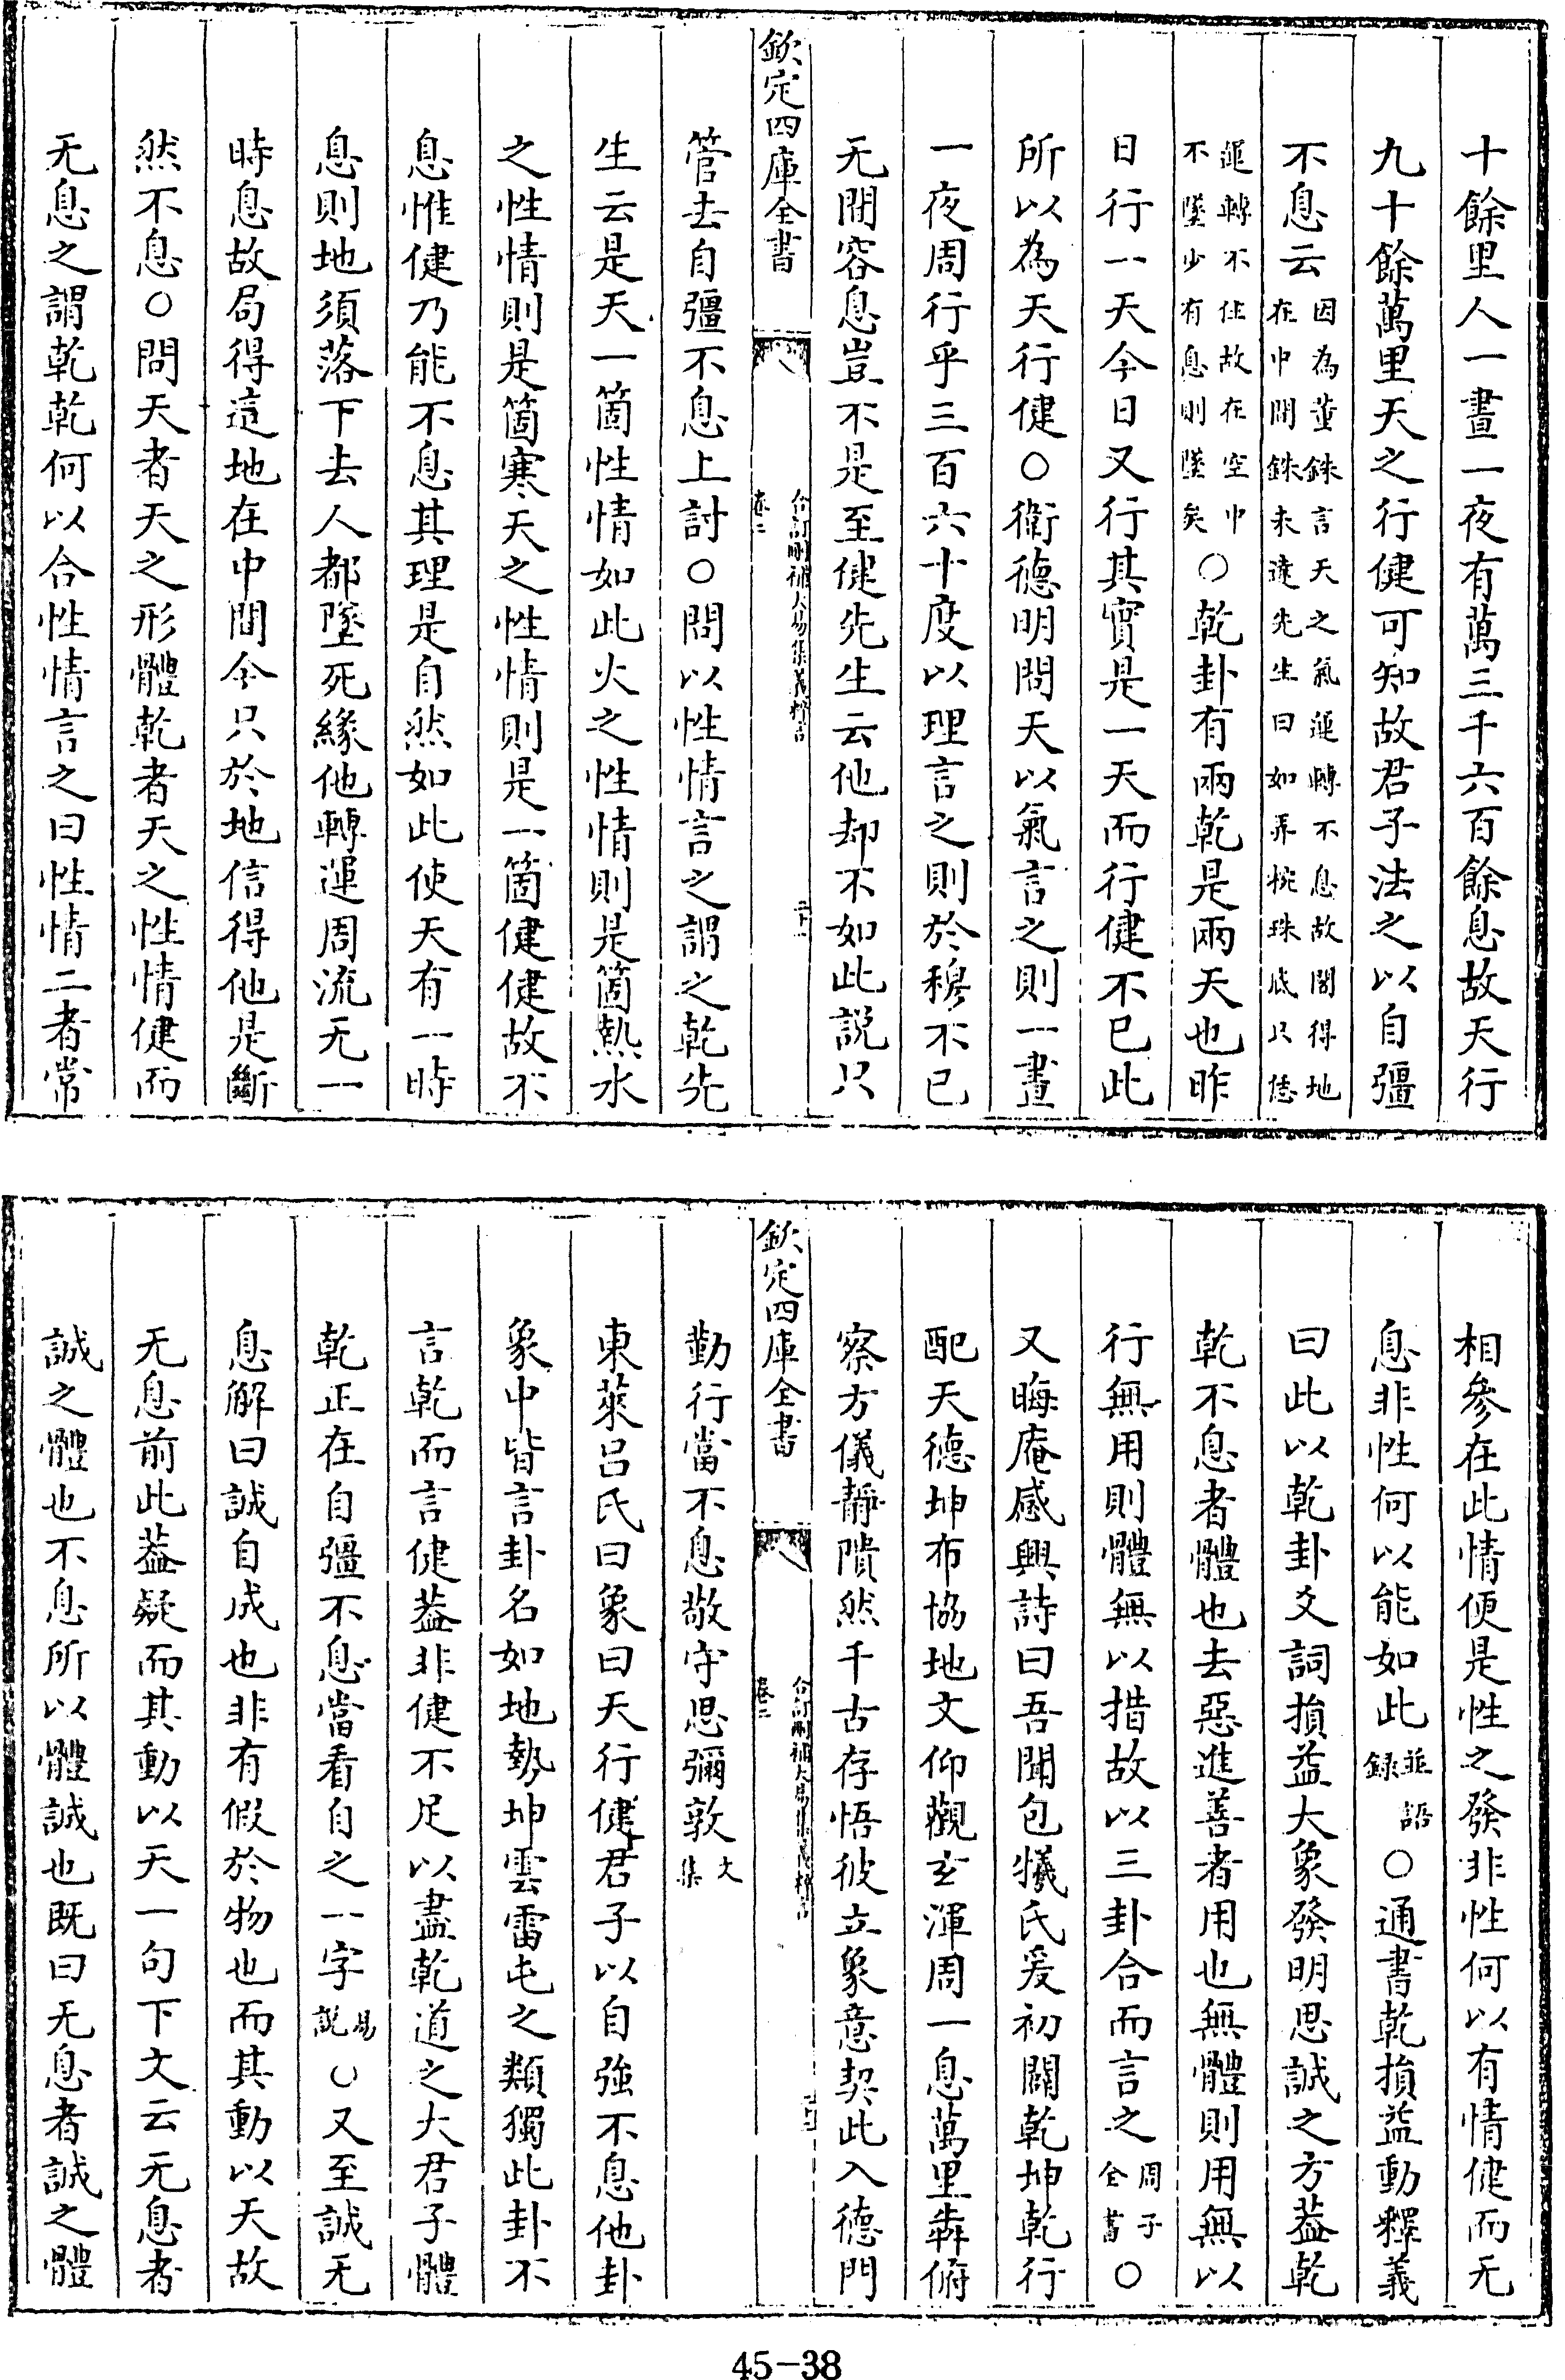 十餘里人一晝一夜有萬三千六百餘息故天行
九十餘萬里天之行健可知故君子法之以自彊
不息云因為董銖言天之氣運轉不息故閣得地
在中間銖未達先生曰如弄椀珠底只恁
運轉不住故在空中
不墜少有息則墜矣○乾卦有兩乾是兩天也昨
日行一天今日又行其實是一天而行健不已此
所以為天行健○衛德明問天以氣言之則一晝
一夜周行乎三百六十度以理言之則於穆不已
无間容息豈不是至健先生云他却不如此説只
欽定四庫全書
合訂刪補大易集義粹言
卷二
管去自彊不息上討○問以性情言之謂之乾先
生云是天一箇性情如此火之性情則是箇熱水
之性情則是箇寒天之性情則是一箇健健故不
息惟健乃能不息其理是自然如此使天有一時
息則地須落下去人都墜死緣他轉運周流无一
時息故局得這地在中間今只於地信得他是斷
然不息○問天者天之形體乾者天之性情健而
无息之謂乾乾何以合性情言之曰性情二者常
相參在此情便是性之發非性何以有情健而无
息非性何以能如此並語
録○通書乾損益動釋義
曰此以乾卦爻詞損益大象發明思誠之方葢乾
乾不息者體也去惡進善者用也無體則用無以
行無用則體無以措故以三卦合而言之周子
全書○
又晦庵感興詩曰吾聞包犧氏爰初闢乾坤乾行
配天德坤布協地文仰觀玄渾周一息萬里奔俯
察方儀靜隤然千古存悟彼立象意契此入德門
欽定四庫全書
合訂刪補大易集義粹言
卷二
勤行當不息敬守思彌敦文
集
東萊吕氏曰象曰天行健君子以自強不息他卦
象中皆言卦名如地勢坤雲雷屯之類獨此卦不
言乾而言健葢非健不足以盡乾道之大君子體
乾正在自彊不息當看自之一字易
説○又至誠无
息解曰誠自成也非有假於物也而其動以天故
无息前此葢疑而其動以天一句下文云无息者
誠之體也不息所以體誠也既曰无息者誠之體
45-38